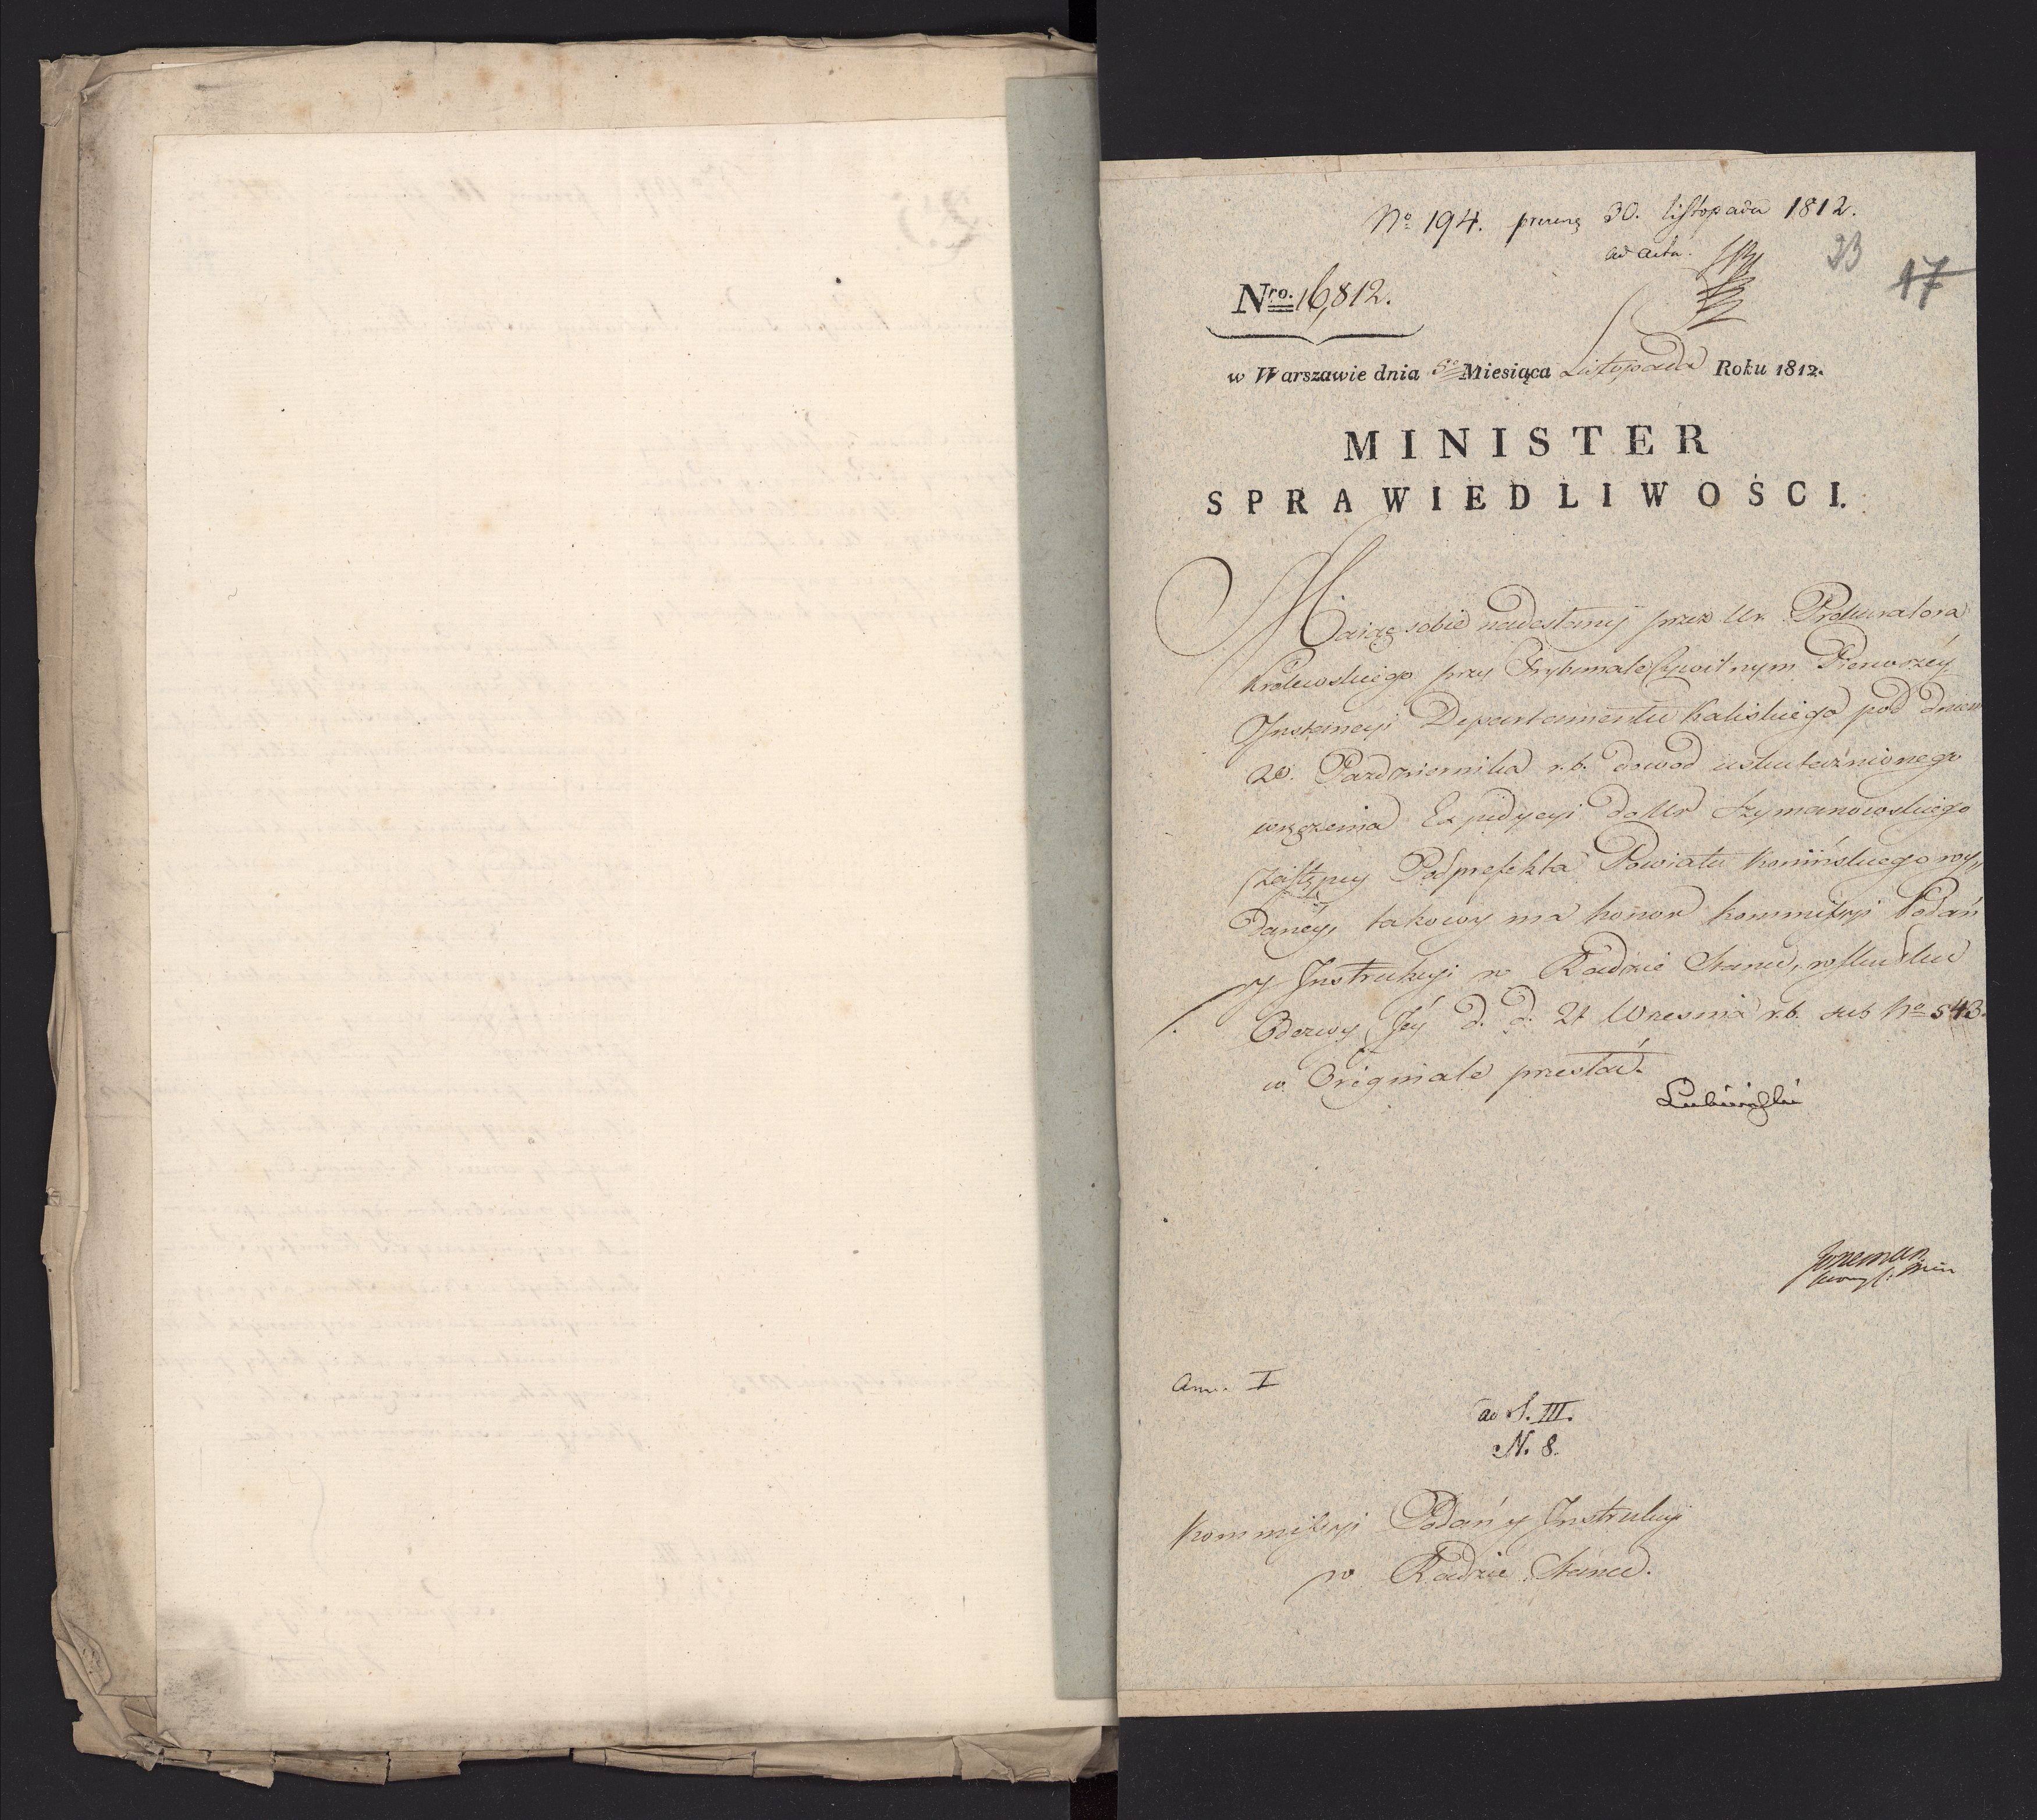 No 194. 30. listopada 1812.
ad acta.
33
17
Nro. 16,812.
w Warszawie dnia 5o Miesiąca Listopada Roku 1812.
MINISTER
SPRAWIEDLIWOŚCI.
Maiąc sobie nadesłany przez Ur. Prokuratora
Królewskiego przy Trybunale Cywilnym Pierwszéy
Instancyi Departamentu Kaliskiego pod dniem
20. Pazdziernika r.b. dowod uskutecznionego
wręczenia Expedycyi do Ur Szymanowskiego
Zastępcy Podprefekta Powiatu Konińskiego wy„
danéy, takowy ma honor Kommissyi Podań
y Instrukcyi w Radzie Stanu, w skutku
Odezwy Jéy d. d. 21 Wresnia r.b. sub No 543.
w Originale przesłać.
Lubieński
Ann. I
ad S. III.
N. 8.
Kommissyi Podań y Instrukcyi
w Radzie Stanu.